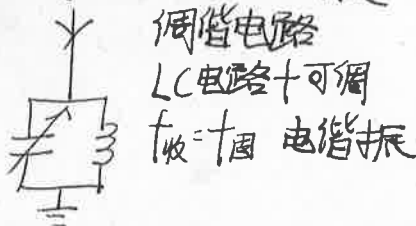 调谐电路
LC电路+可调
f收=f固 电谐振